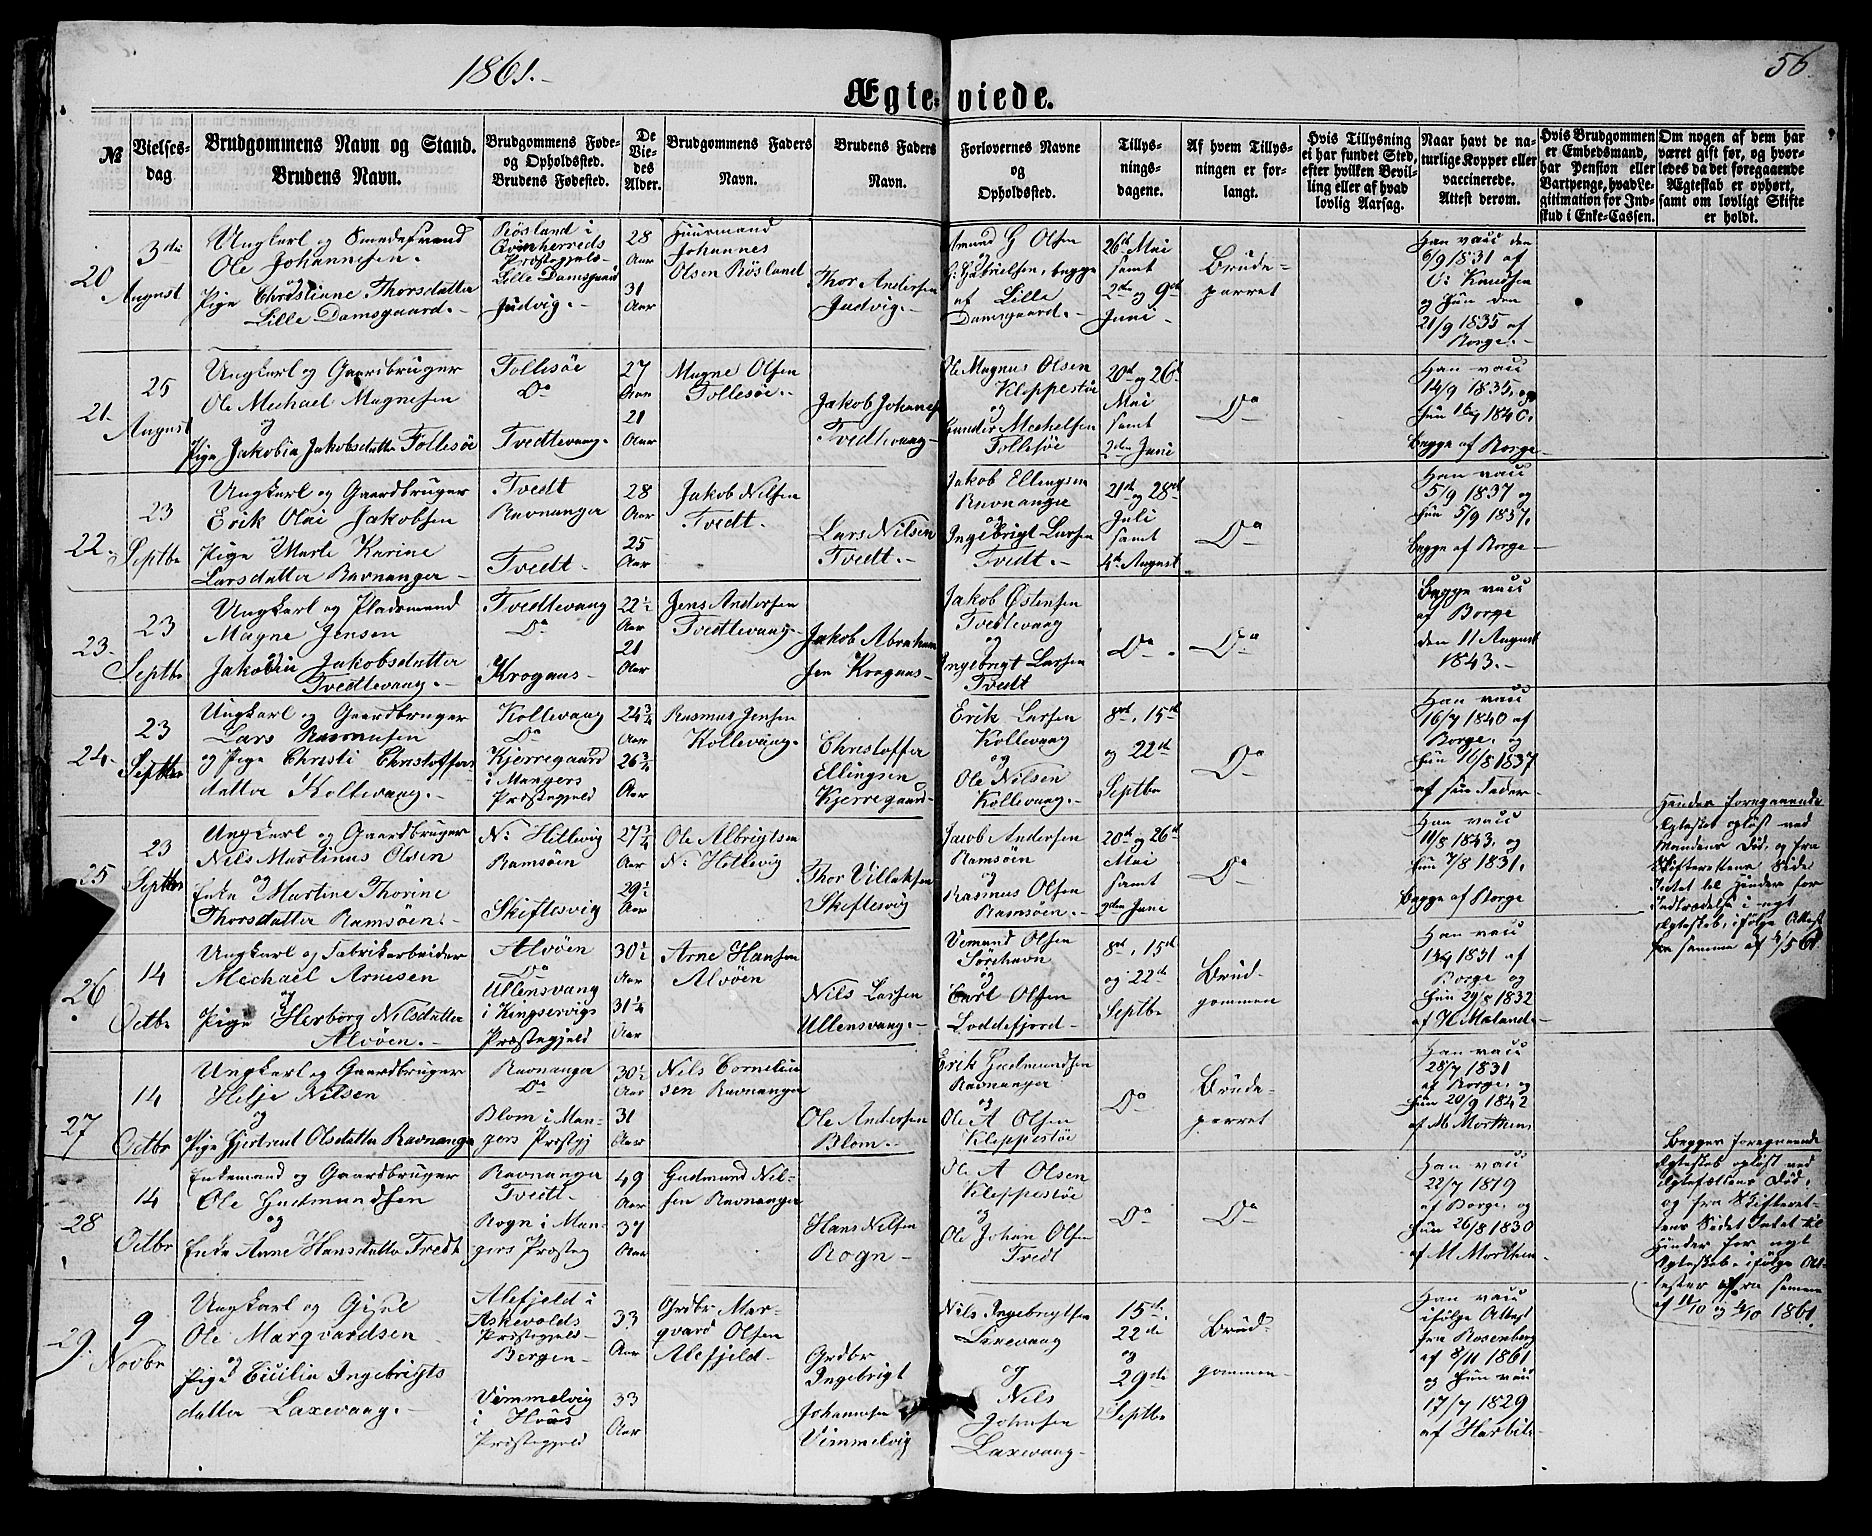 1861.-
56.
Ægteviede.
№
Vielses-
dag.
Brudgommens Navn og Stand.
Brudens Navn.
Brudgommens Føde-
og Opholdssted.
Brudens Fødested.
De
Vie-
des
Alder.
Brudgommens Faders
Navn.
Brudens Faders
Navn.
Forlovernes Navne
og
Opholdssted.
Tillys-
nings-
dagene.
Af hvem Tillys-
ningen er for-
langt.
Hvis Tillysning
ei har fundet Sted,
efter hvilken Bevil-
ling eller af hvad
lovlig Aarsag.
Naar havt de na-
turlige Kopper eller
vaccinerede.
Attest derom.
Hvis Brudgommen
er Embedsmand,
har Pension eller
Vartpenge, hvad Le-
gitimation for Ind-
skud i Enke-Cassen.
Om nogen af dem har
været gift før, og hvor-
ledes da det foregaaende
Ægteskab er ophørt,
samt om lovligt Skifte
er holdt.
20
3die
August
Ungkarl og Smedesvend
Ole Johannesen.
og
Pige Christianne Thorsdatter
Lille Damsgaard.-
Røsland i
Præstegjeld-
Lille Damsgaard
Judvig.-
28
Aar
31
Aar
Huusmand
Johannes
Olsen Røsland
Thor Andersen
Judvig.-
Amund G Olsen
og
G. Gabrielsen, begge
af Lille
Damsgaard.-
26de Mai
samt
2den og 9de
Juni-
Brude-
parret
Han vacc den
6/9 1831 af
U: Knudsen
og Hun den
21/9 1835 af
Borge.-
21.
25
August
Ungkarl og Gaardbruger
Ole Mechael Magnesen
og
Pige Jakobia Jakobsdatter Follesøe
Follesøe
Do
Tvedtevaag.-
27
Aar
21
Aar
Magne Olsen
Follesøe.-
Jakob Johanes
Tvedtevaag-
Ole Magnus Olsen
Kleppestøe
og
Gunder Mechelsen
Follesøe
20de og 26de
Mai
samt
2den Juni
Do
Han vacc
14/9 1835, og
Hun 1840.
begge af Borge-
22.
23
Septbr
Ungkarl og Gaardbruger
Erik Olai Jakobsen
Pige Marte Karine
Larsdatter Ravnanger-
Tvedt
Ravnanger
Tvedt-
28
Aar
25
Aar
Jakob Nilsen
Tvedt.
Lars Nilsen
Tvedt.-
Jakob Ellingsen
Ravnanger
og
Ingebrigt Larsen
Tvedt.-
21de og 28de
Juli
samt
4de August
Do
Han vacc
5/9 1837 og
Hun 5/9 1837.
begge af Borge-
23.
23
Septbr
Ungkarl og Pladsmand
Magne Jensen
og
Jakobia Jakobsdatter
Tvedtevaag.-
Tvedtevaag
Do
Krogaas-
22½
Aar
21
Aar
Jens Andersen
Tvedtevaag-
Jakob Abraham
sen Krogaas-
Jakob Østensen
Tvedtevaag
og
Ingebrigt Larsen
Tvedt
Do
Do
Begge vacc
af Borge
den 11 August
1843.-
24.
23
Septber
Ungkarl og Gaardbruger
Lars Rasmusen
og Pige Christi Christoffers
datter Kollevaag.-
Kollevaag
Do
Kjerregaard
i Mangers
Præstegjeld
24¾
Aar
26¾
Aar
Rasmus Jensen
Kollevaag.
Christoffer
Ellingsen
Kjerregaard-
Erik Larsen
Kollevaag
og
Ole Nilsen
Kollevaag.-
8de, 15de
og 22de
Septbr
Do
Han vacc
16/7 1840 af
Borge, og
Hun 16/8 1837
af sin Fader-
25
23
Septber
Ungkarl og Gaardbruger
Nils Martinus Olsen
og
Enke Martine Thorine
Thorsdatter Ramsøen.-
N: Hitlevig
Ramsøen
Skiftesvig
27¾
Aar
29½
Aar
Ole Albrigtsen
N: Hetlevig
Thor Villaksen
Skiftesvig
Jacob Andersen
Ramsøen
og
Rasmus Olsen
Ramsøen.-
20de og 26de
Mai
samt
2den Juni
Do
Han vacc
11/8 1843, og
Hun 7/8 1831.
Begge af Borge
Hendes foregaaende
Ægteskab opløst ved
Mandens Død, og fra
Skifterettens Side
Intet til Hinder for
Indtrædelse i nyt
Ægteskab, ifølge Attest
fra samme af 4/5 61.
26
14
Octbr
Ungkarl og Fabrikarbeider
Mechael Arnesen
og
Pige Herborg Nilsdatter
Alvøen.-
Alvøen
Do
Ullensvang
i Kingservigs
Præstegjeld
30½
Aar
31¼
Aar
Arne Hansen
Alvøen
Nils Larsen
Ullensvang.-
Vemund Olsen
Sørehavn
og
Carl Olsen
Loddefjord-
8de, 15de
og 22de
Septbr
Brud-
gommen
Han vacc
1831 af
Borge og
Hun 29/8 1832
af H. Maland-
27
14
Octbr
Ungkarl og Gaardbruger
Helje Nilsen
og
Pige Gjertrud Olsdatter Ravnanger
Ravnanger
Do
Blom i Man-
gers Præstgj
30½
Aar
31
Aar
Nils Corneliu
sen Ravnanger
Ole Andersen
Blom.-
Erik Gudmundsen
Ravnanger
og
Ole A Olsen
Kleppestøe
Do
Brude-
parret
Han vacc
28/7 1831
af Borge, og
Hun 20/9 1842
af M. Morthens
28
14
Octbr
Enkemand og Gaardbruger
Ole Gudmundsen
og
Enke Anne Hansdatter Tvedt
Ravnanger
Tvedt-
Rogn i Man-
gers Præsteg
49
Aar
37
Aar
Gudmund Nil-
sen Ravnanger
Hans Nilsen
Rogn-
Ole A Olsen
Kleppestøe
og
Ole Johan Olsen
Tvedt
Do
Do
Han vacc
22/7 1819
af Borge, og
Hun 26/8 1830
af M. Morthen-
Begges foregaaende
Ægteskab opløst ved
Ægtefællens Død,
og fra Skifteret-
tens Side Intet til
Hinder for nyt
Ægteskab, ifølge At-
tester fra samme
1861.
29.
9
Novbr
Ungkarl og
Ole Margvardsen
og
Pige Cecilia Ingebrigts
datter Laxevaag.-
Alefjeld i
Askevolds
Præstegjeld-
Bergen-
Vemmelvig
i
Præstegjeld
33
Aar
33
Aar
Grdbr Mar-
qvard Olsen
Alefjeld-
Grdbr
Ingebrigt
Johannesen
Vemmelvig
Nils Ingebrigtsen
Laxevaag
og
Nils
Johnsen
Laxevaag-
15de
22de
og
29de
Septbr
Brud-
gommen-
Han vacc
ifølge Attest
fra Rosenberg
af 8/11 1861
og Hun vacc
17/7 1829